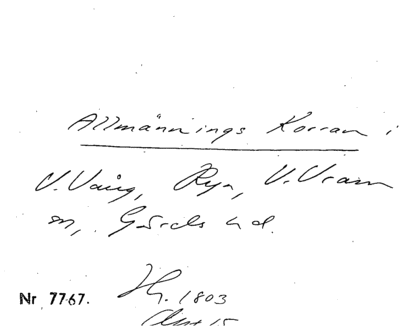 Allmännings Korran i
V. Vång, Rya, V. Vram
m, Gärds hd.
Nr 7767. Hg. 1803